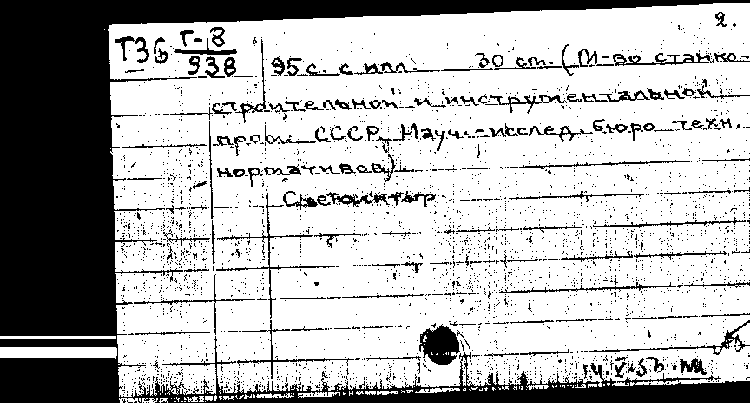 2.
Т36 Г-8
938
95 с. с илл. 30 см. (М-во станко-
строительной и инструментальной
пром. СССР. Науч.-исслед. бюро техн.
нормативов).
Светокитогр